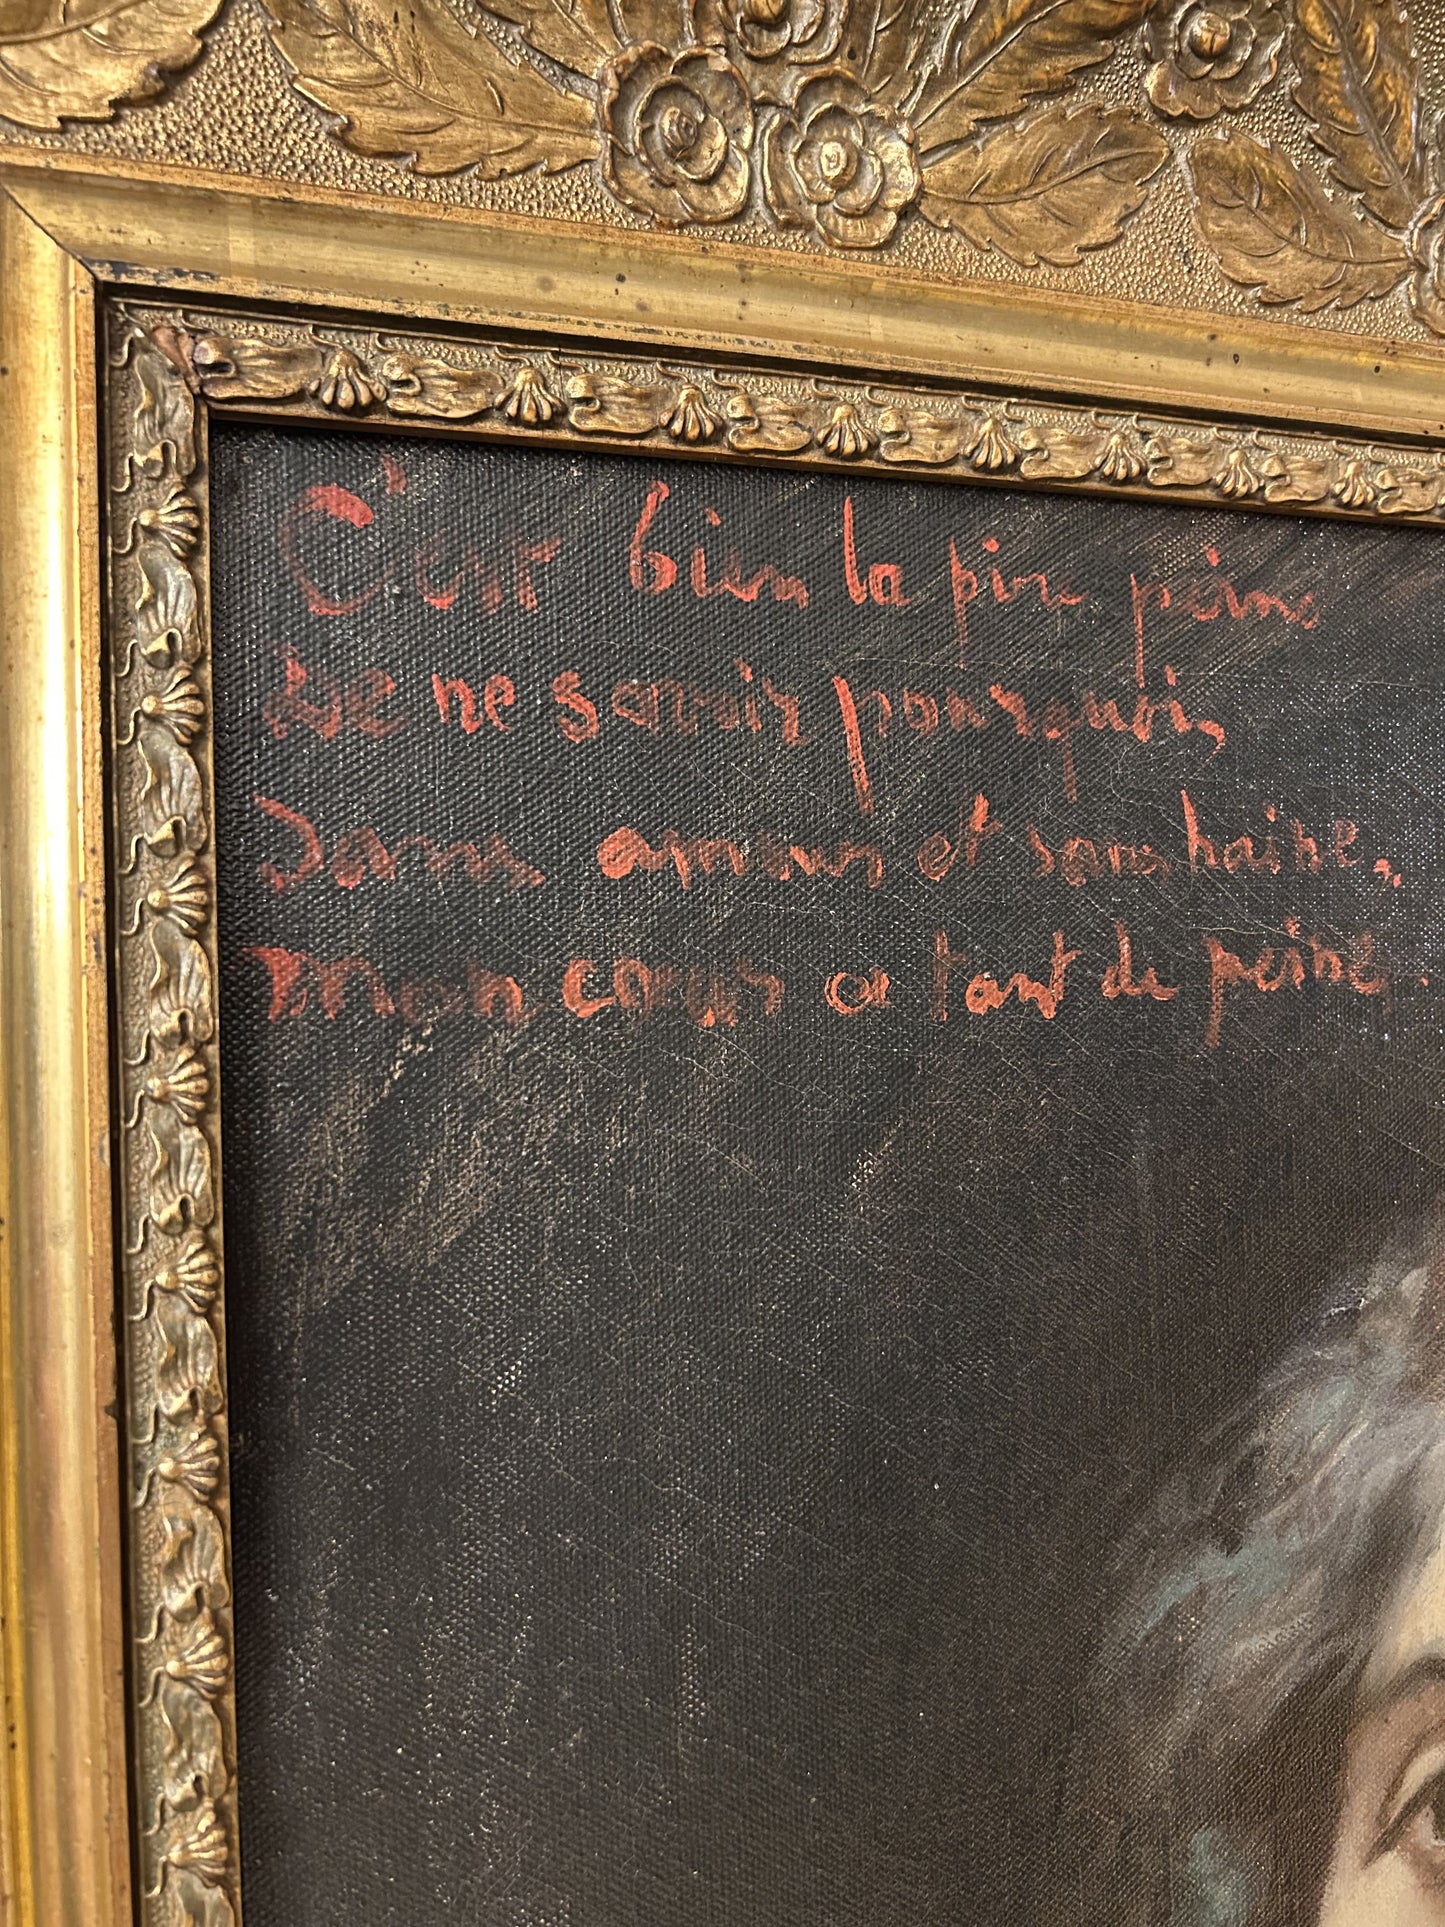 C'est bien la pire peine
De ne savoir pourquoi,
Sans amour et sans haine,
Mon coeur a tant de peine.